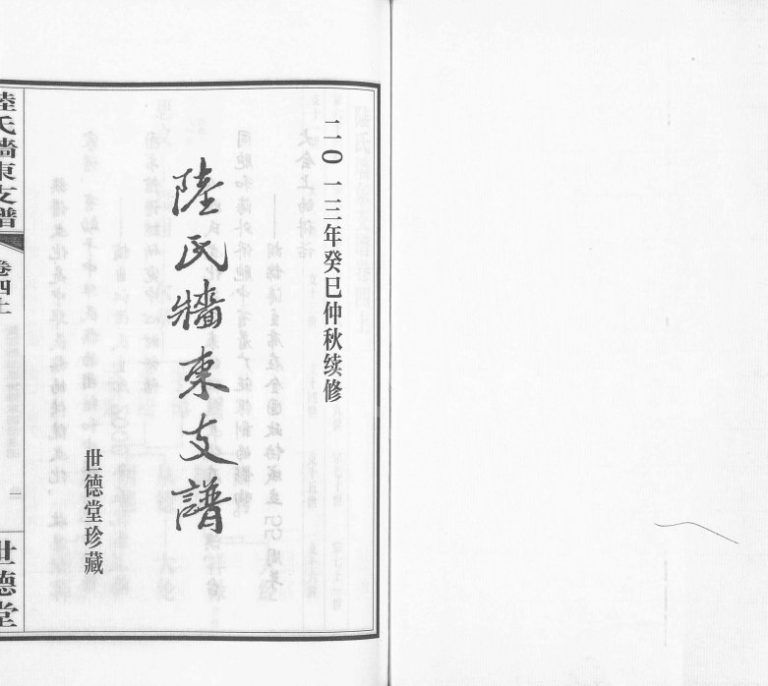 二〇一三年癸巳仲秋续修
陸氏牆東支譜
世德堂珍藏
陸氏牆東支譜
卷四上
一
世德堂